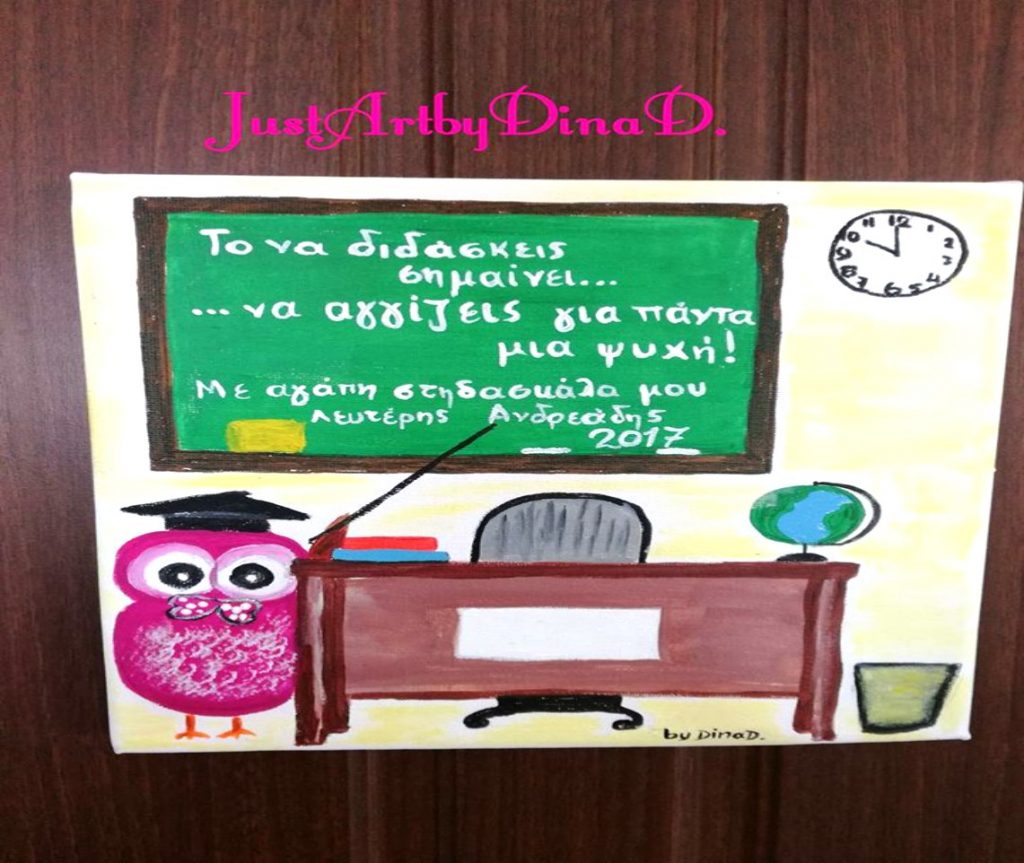 JustArtbyDinaD.
Το να διδάσκεις
σημαίνει...
...να αγγίζεις για πάντα
μια ψυχή!
Με αγάπη στηδασκάλα μου
Λευτέρης Ανδρεάδης
2017
11 12 1
10 2
9 3
8 4
7 6 5
by DinaD.